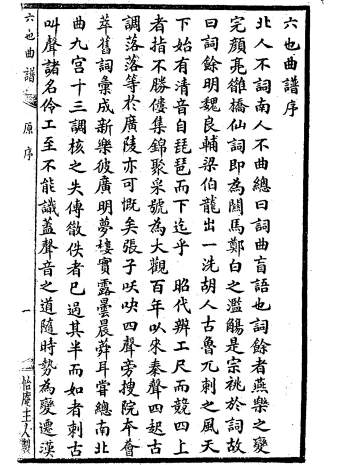 六也曲譜序
北人不詞南人不曲總曰詞曲盲語也詞餘者燕樂之變
完顏亮雒橋仙詞即為關馬鄭白之濫觴是宗祧於詞故
曰詞餘明魏良輔梁伯龍出一洗胡人古魯兀剌之風天
下始有清音自琵琶而下迄乎 昭代辨工尺而競四上
者指不勝僂集錦聚采號為大觀百年以來秦聲四起古
調落落等於廣陵亦可慨矣張子㕭㕭四聲旁搜院本薈
萃舊詞彙成新樂彼廣明夢樓實露曇晨舜耳嘗總南北
曲九宮十三調核之失傳徵佚者已過其半而如者刺古
叫聲諸名伶工至不能識蓋聲音之道隨時勢為變遷漢
六也曲譜
原序
一
怡庵主人製